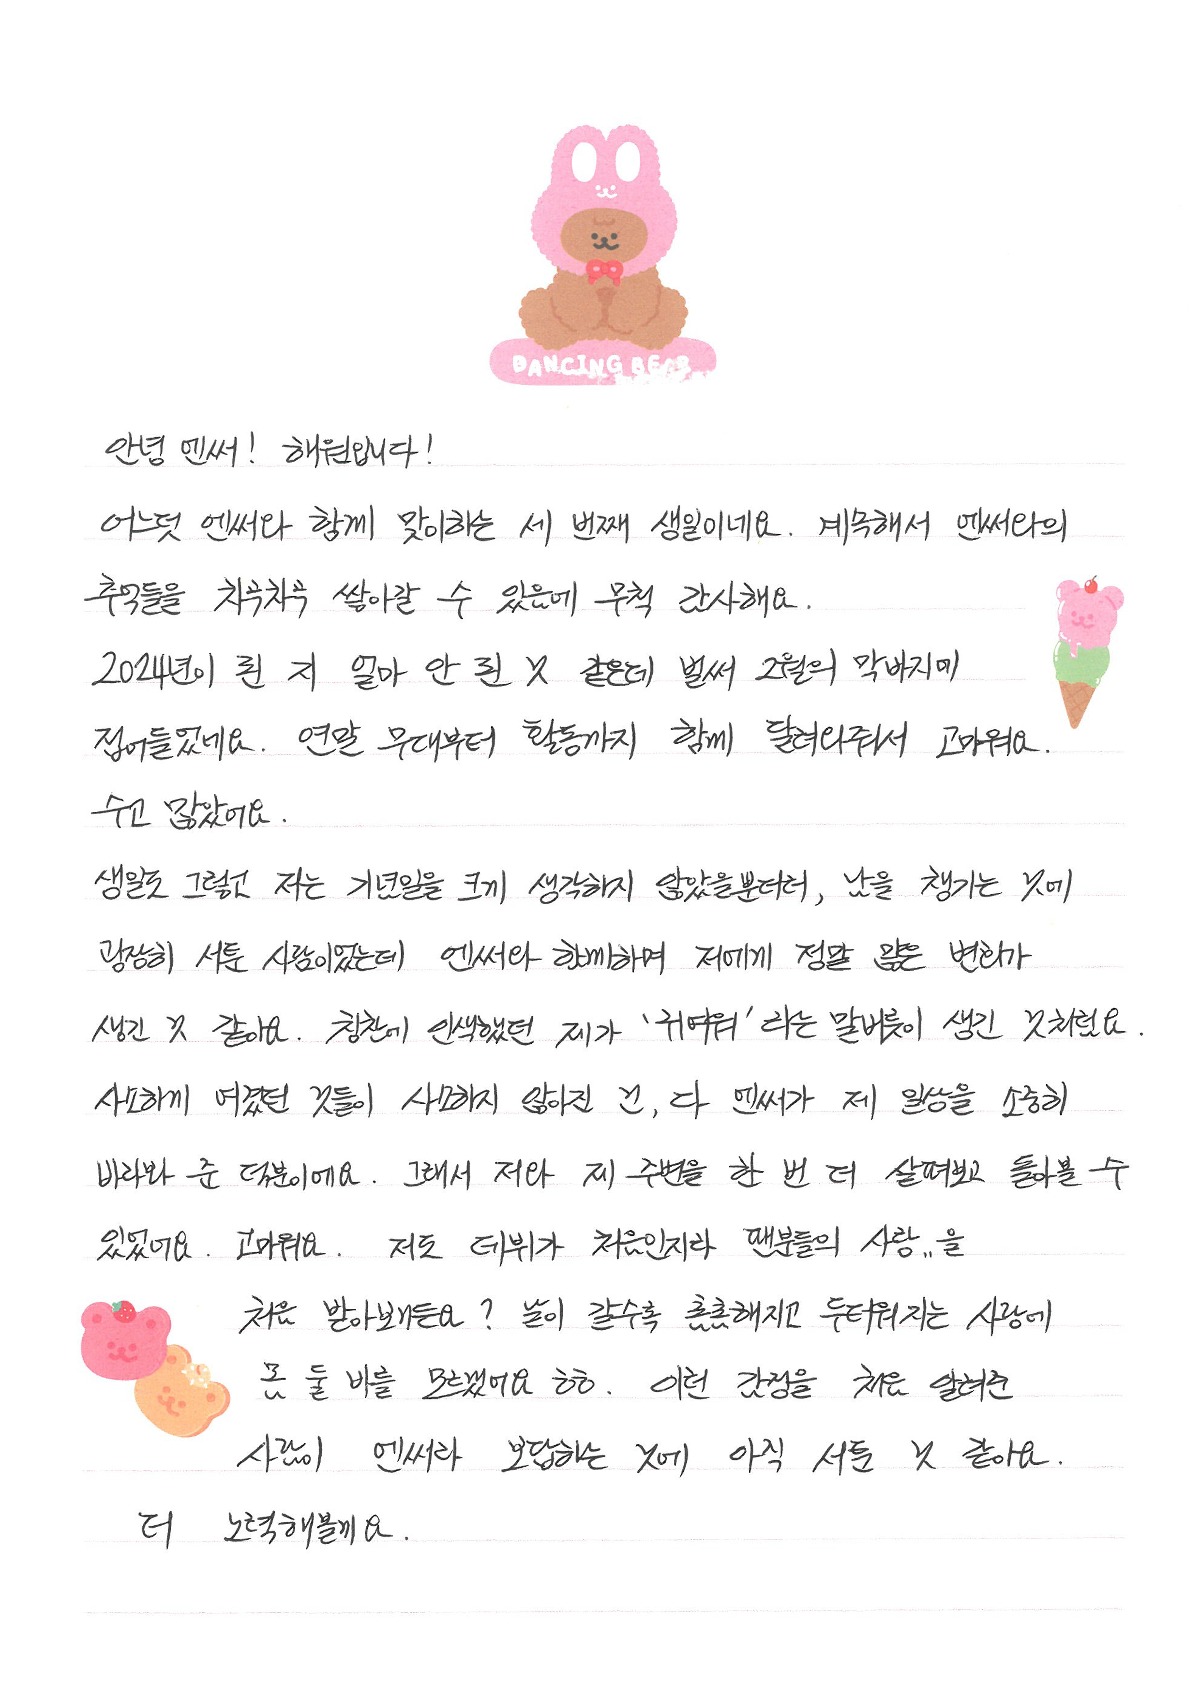 DANCING BEAR
안녕 엔써! 해원입니다!
어느덧 엔써와 함께 맞이하는 세 번째 생일이네요. 계속해서 엔써와의
추억들을 차곡차곡 쌓아갈 수 있음에 무척 감사해요.
2024년이 된 지 얼마 안 된 것 같은데 벌써 2월의 막바지에
접어들었네요. 연말 무대부터 활동까지 함께 달려와줘서 고마워요.
수고 많았어요.
생일도 그렇고 저는 기념일을 크게 생각하지 않았을뿐더러, 남을 챙기는 것에
굉장히 서툰 사람이었는데 엔써와 함께하며 저에게 정말 많은 변화가
생긴 것 같아요. 칭찬에 인색했던 제가 '귀여워'라는 말버릇이 생긴 것처럼요.
사소하게 여겼던 것들이 사소하지 않아진 건, 다 엔써가 제 일상을 소중히
바라봐 준 덕분이에요. 그래서 저와 제 주변을 한 번 더 살펴보고 돌아볼 수
있었어요. 고마워요. 저도 데뷔가 처음인지라 팬분들의 사랑,,을
처음 받아보거든요? 날이 갈수록 촘촘해지고 두터워지는 사랑에
몸 둘 바를 모르겠어요 ㅎㅎ. 이런 감정을 처음 알려준
사람이 엔써라 보답하는 것에 아직 서툰 것 같아요.
더 노력해볼게요.